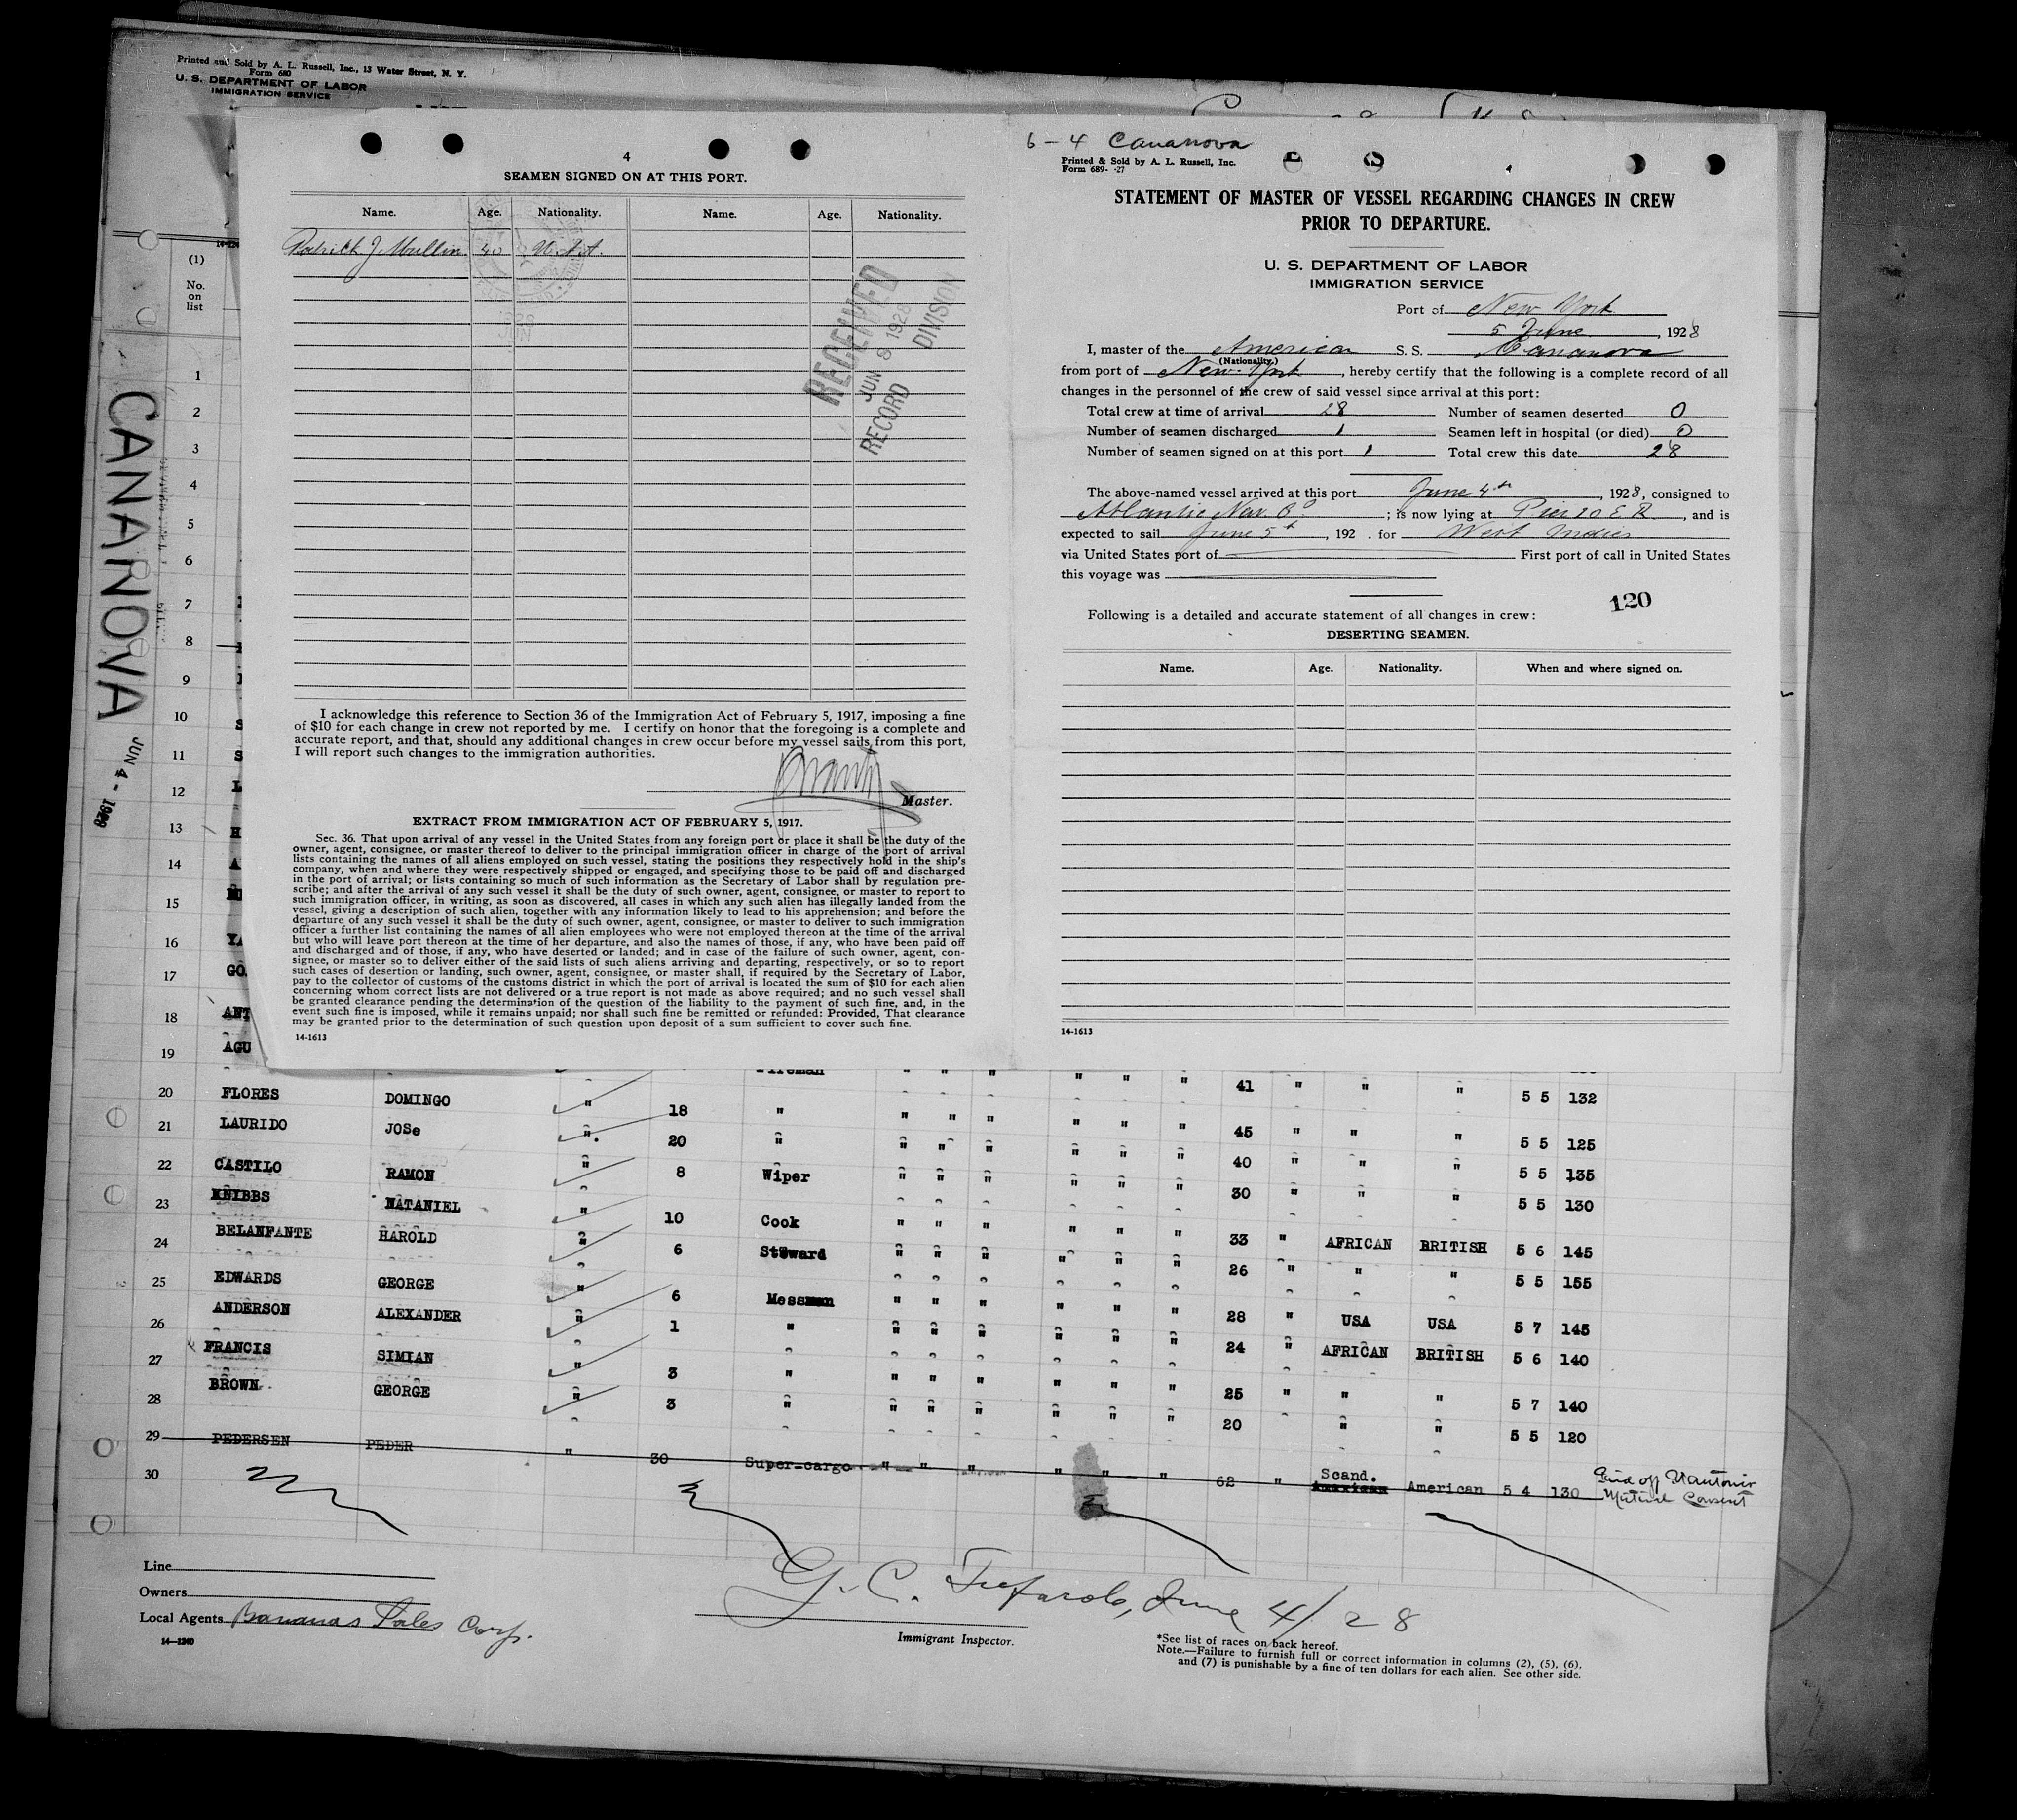 Printed and Sold by A. L. Russell, Inc., 13 Water Street, N. Y.
Form 680
U. S. DEPARTMENT OF LABOR
IMMIGRATION SERVICE
(1)
No.
on
list
CANANOVA
JUN 4 - 1928
4
SEAMEN SIGNED ON AT THIS PORT.
Name. Age. Nationality. Name. Age. Nationality.
Patrick J Mullin 40 U.S.A.
RECEIVED
JUN 8 1928
RECORD DIVISION
I acknowledge this reference to Section 36 of the Immigration Act of February 5, 1917, imposing a fine
of $10 for each change in crew not reported by me. I certify on honor that the foregoing is a complete and
accurate report, and that, should any additional changes in crew occur before my vessel sails from this port,
I will report such changes to the immigration authorities.
Master.
EXTRACT FROM IMMIGRATION ACT OF FEBRUARY 5, 1917.
Sec. 36. That upon arrival of any vessel in the United States from any foreign port or place it shall be the duty of the
owner, agent, consignee, or master thereof to deliver to the principal immigration officer in charge of the port of arrival
lists containing the names of all aliens employed on such vessel, stating the positions they respectively hold in the ship's
company, when and where they were respectively shipped or engaged, and specifying those to be paid off and discharged
in the port of arrival; or lists containing so much of such information as the Secretary of Labor shall by regulation pre-
scribe; and after the arrival of any such vessel it shall be the duty of such owner, agent, consignee, or master to report to
such immigration officer, in writing, as soon as discovered, all cases in which any such alien has illegally landed from the
vessel, giving a description of such alien, together with any information likely to lead to his apprehension; and before the
departure of any such vessel it shall be the duty of such owner, agent, consignee, or master to deliver to such immigration
officer a further list containing the names of all alien employees who were not employed thereon at the time of the arrival
but who will leave port thereon at the time of her departure, and also the names of those, if any, who have been paid off
and discharged and of those, if any, who have deserted or landed; and in case of the failure of such owner, agent, con-
signee, or master so to deliver either of the said lists of such aliens arriving and departing, respectively, or so to report
such cases of desertion or landing, such owner, agent, consignee, or master shall, if required by the Secretary of Labor,
pay to the collector of customs of the customs district in which the port of arrival is located the sum of $10 for each alien
concerning whom correct lists are not delivered or a true report is not made as above required; and no such vessel shall
be granted clearance pending the determination of the question of the liability to the payment of such fine, and, in the
event such fine is imposed, while it remains unpaid; nor shall such fine be remitted or refunded: Provided, That clearance
may be granted prior to the determination of such question upon deposit of a sum sufficient to cover such fine.
14-1613
6-4 Cananova
Printed & Sold by A. L. Russell, Inc.
Form 689- -27
STATEMENT OF MASTER OF VESSEL REGARDING CHANGES IN CREW
PRIOR TO DEPARTURE.
U. S. DEPARTMENT OF LABOR
IMMIGRATION SERVICE
Port of New York
5 June, 1928
I, master of the American S. S. Cananova
(Nationality.)
from port of New York, hereby certify that the following is a complete record of all
changes in the personnel of the crew of said vessel since arrival at this port:
Total crew at time of arrival 28 Number of seamen deserted 0
Number of seamen discharged 1 Seamen left in hospital (or died) 0
Number of seamen signed on at this port 1 Total crew this date 28
The above-named vessel arrived at this port June 4th, 1928, consigned to
Atlantic Nav. Co; is now lying at Pier 20 E R, and is
expected to sail June 5th, 192 . for West Indies
via United States port of First port of call in United States
this voyage was
120
Following is a detailed and accurate statement of all changes in crew:
DESERTING SEAMEN.
Name. Age. Nationality. When and where signed on.
14-1613
1
2
3
4
5
6
7
8
9
10
11
12
13
14
15
16
17
18 ANT
19 AGU
Fireman
20 FLORES DOMINGO " 18 " " " " " " " 41 " " " 5 5 132
21 LAURIDO JOSe " 20 " " " " " " " 45 " " " 5 5 125
22 CASTILO RAMON " 8 Wiper " " " " " " 40 " " " 5 5 135
23 KNIBBS NATANIEL " 10 Cook " " " " " " 30 " " " 5 5 130
24 BELANFANTE HAROLD " 6 Steward " " " " " " 33 " AFRICAN BRITISH 5 6 145
25 EDWARDS GEORGE " 6 Messman " " " " " " 26 " " " 5 5 155
26 ANDERSON ALEXANDER " 1 " " " " " " " 28 " USA USA 5 7 145
27 FRANCIS SIMIAN " 3 " " " " " " " 24 " AFRICAN BRITISH 5 6 140
28 BROWN GEORGE " 3 " " " " " " " 25 " " " 5 7 140
20 " " 5 5 120
29 PEDERSEN PEDER " 30 Super-cargo " " " " " " 62 " Scand. American 5 4 130
Mutual Consent
30
Line
Owners
Local Agents Bananas Sales Corp.
14-1240
June 4/28
Immigrant Inspector.
*See list of races on back hereof.
Note.—Failure to furnish full or correct information in columns (2), (5), (6),
and (7) is punishable by a fine of ten dollars for each alien. See other side.